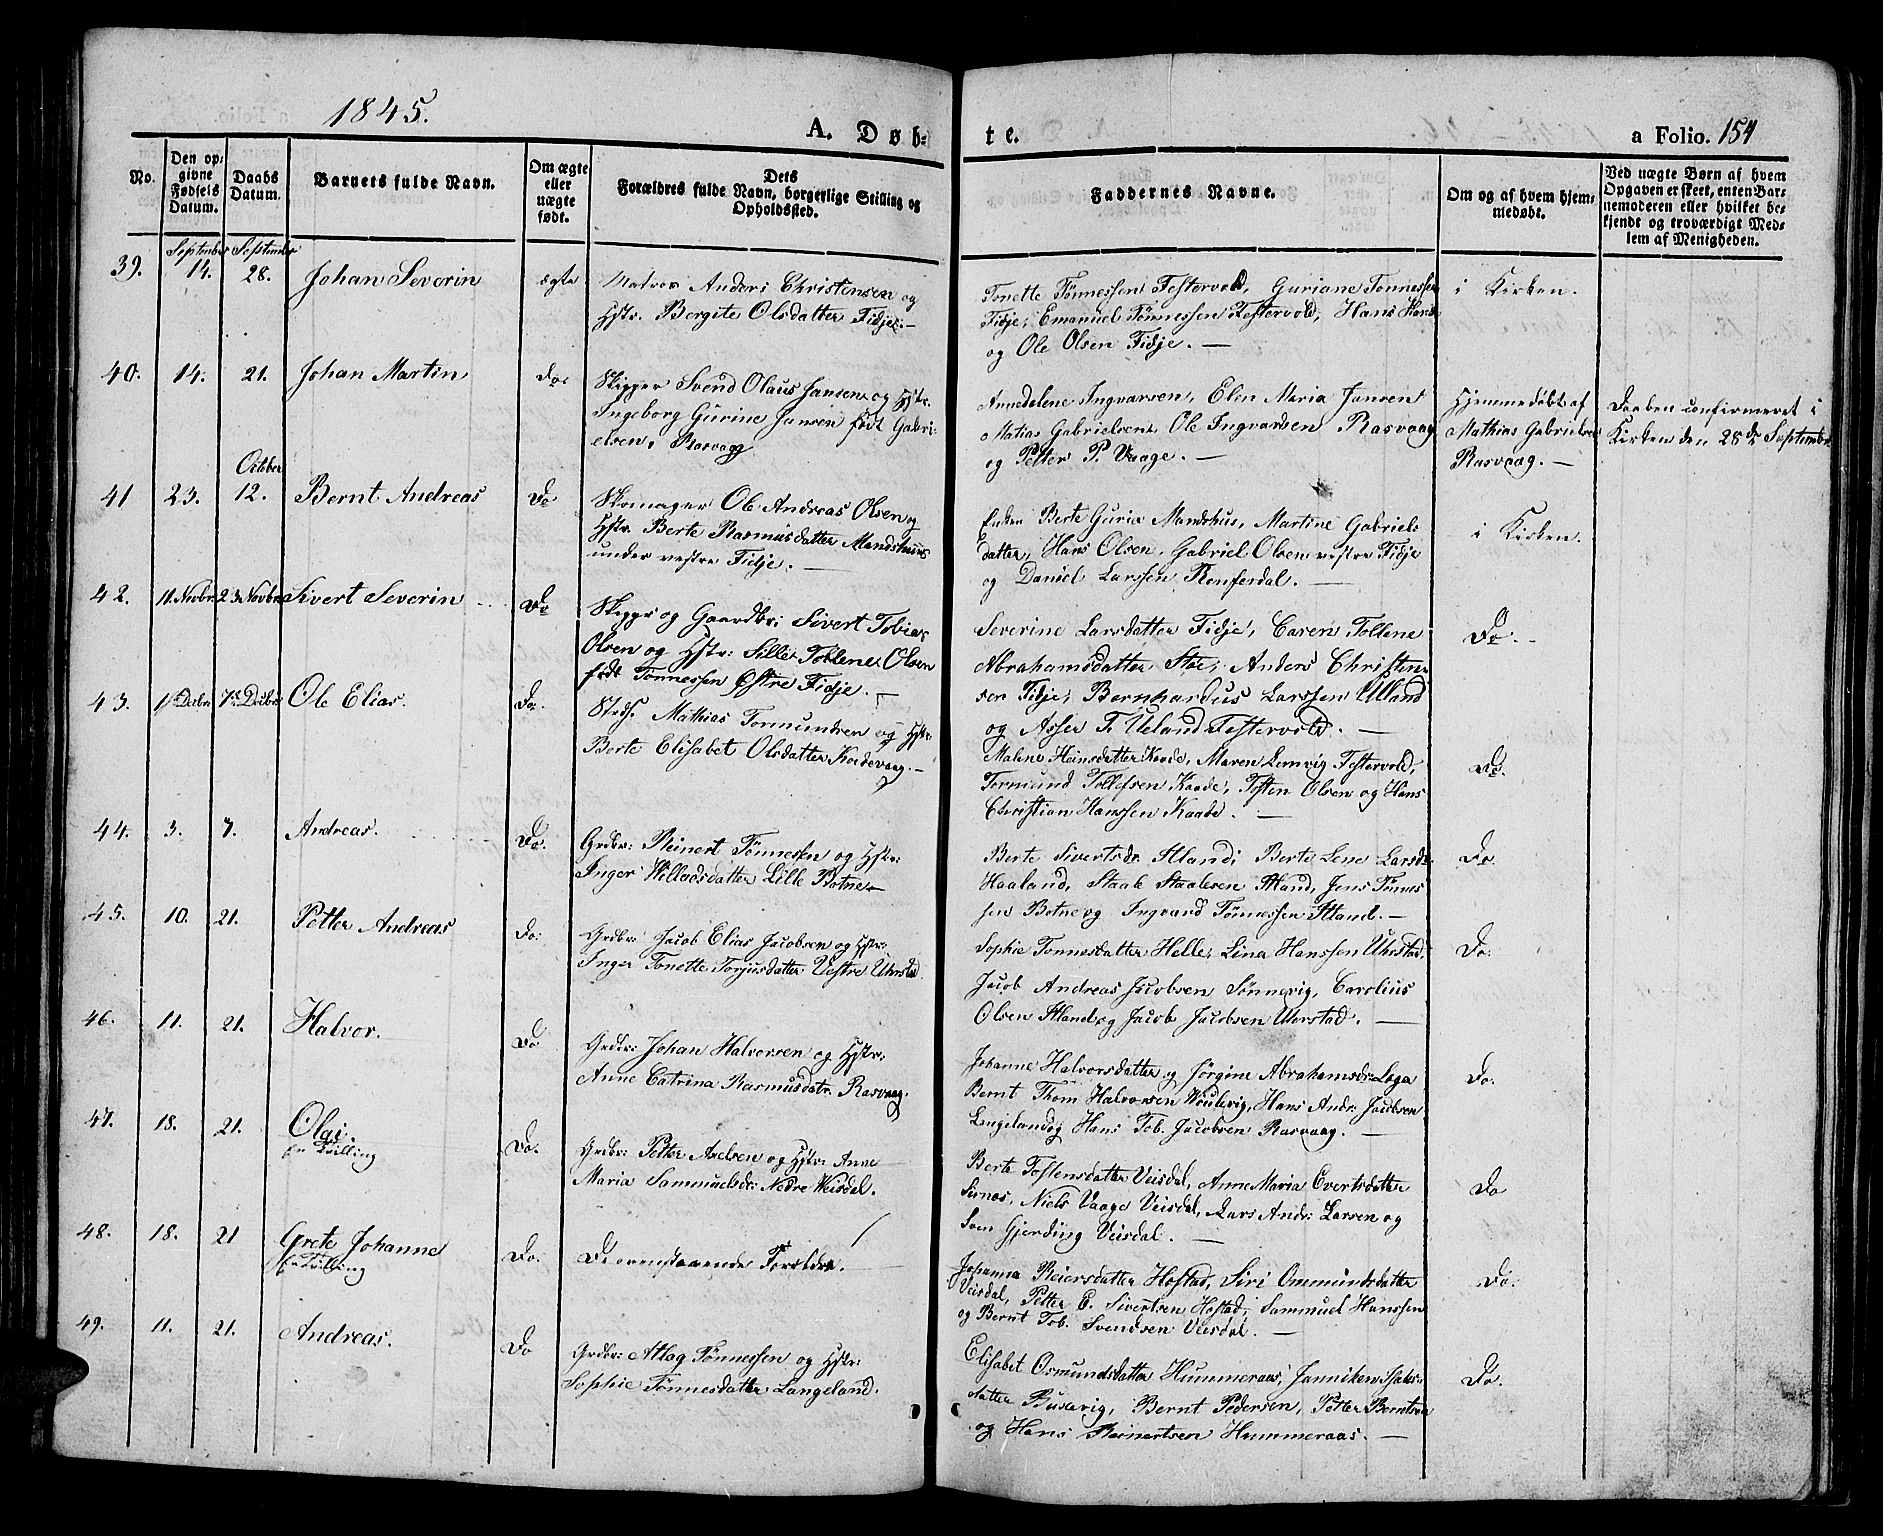 1845.
A. Døb-
te.
a Folio. 154
No.
Den op-
givne
Fødsels
Datum.
Daabs
Datum.
Barnets fulde Navn.
Om ægte
eller
uægte
født.
Dets
Forældres fulde Navn, borgerlige Stilling og
Opholdssted.
Faddernes Navne.
Om og af hvem hjem-
medøbt.
Ved uægte Børn af hvem
Opgaven er skeet, enten Bar-
nemoderen eller hvilket be-
kjendt og troværdigt Med-
lem af Menigheden.
September September
39. 14. 28. Johan Severin ægte
Matros Anders Christensen og
Hstr. Bergite Olsdatter Fidje. —
Tonette Tønnessen Festervold, Guriane Tønnessen
Fidje, Emanuel Tønnessen Festervold, Hans Hans
og Ole Olsen Fidje. —
i Kirken.
40. 14. 21. Johan Martin do.
Skipper Svend Olaus Jansen og Hstr.
Ingeborg Gurine Jansen født Gabri-
elsen, Rasvaag
Annedelene Ingvarsen, Elen Maria Jansen
Matias Gabrielsen, Ole Ingvarsen Rasvaag
og Petter P. Vaage. —
Hjemmedøbt af
Mathias Gabrielsen
Rasvaag. —
Daaben confirmeret i
Kirken den 28de September
October
41 23. 12. Bernt Andreas Do
Skomager Ole Andreas Olsen og
Hstr. Berte Rasmusdatter Mandshuus
under vestre Fidje. —
Enken Berte Guria Mandshus, Martine Gabriels-
datter, Hans Olsen, Gabriel Olsen vestre Fidje
og Daniel Larssen Renferdal. —
i Kirken.
42. 11. Novbr. 23. Novbr. Sivert Severin Do
Skipper og Gaardbr: Sivert Tobias
Olsen og Hstr: Sille Tollene Olsen
født Tønnessen Østre Fidje. —
Severine Larsdatter Fidje, Caren Tollene
Abrahamsdatter Stoe, Anders Christen-
sen Fidje, Bernhardus Larssen Ulland
og Asser T. Ueland Festervold. —
Do. -
43. 1ste Decbr 7de Decbr Ole Elias. Do.
Strds. Mathias Tormundsen og Hstr:
Berte Elisabet Olsdatter Kordevaag. —
Malene Heinsdatter Kaade, Maren Lemvig Festervold,
Tormund Tollefsen Kaade, Tosten Olsen og Hans
Christian Hanssen Kaade. —
Do.
44. 3. 7. Andreas. Do.
Grdbr: Reinert Tønnessen og Hstr:
Inger Willadsdatter Lille Botne —
Berte Sivertsdr. Stland; Berte Lene Larsdr
Haaland, Staale Staalesen Stland, Jens Tønnes
sen Botne og Ingvard Tønnessen Stland. —
Do.
45. 10. 21. Petter Andreas Do:
Grdbr: Jacob Elias Jacobsen og Hstr:
Inger Tonette Torjusdatter Vestre Uhrstad
Sophie Tonnesdatter Helle, Lina Hanssen Uhrstad,
Jacob Andreas Jacobsen Sønnevig, Carolius
Olsen Stland og Jacob Jacobsen Uhrstad. —
Do.
46. 11. 21. Halvor. Do
Grdbr: Johan Halvorsen og Hstr:
Anne Catrina Rasmusdatr. Rasvaag.
Johanne Halvorsdatter og Jørgine Abrahamsdr. Loga
Bernt Thom Halvorsen Woulevig, Hans Andr. Jacobsen
Lengeland og Hans Tob. Jacobsen Rasvaag. —
Do.
47. 18. 21. Olai. Do.
en Tvilling
Grdbr: Petter Axelsen og Hstr: Anne
Maria Sammuelsdr: Nedre Weisdal.
Berte Tostensdatter Veisdal, Anne Maria Evertsdatter
Sirnes, Niels Vaage Veisdal, Lars Andr. Larsen og
Sven Gjerding Veisdal. —
Do
48. 18. 21 Grete Johanne Do.
en Tvilling
De ovenstaaende Forældre. —
Johanna Reiersdatter Hostad, Siri Ommundsdatter
Veisdal, Petter E. Sivertsen Hostad, Sammuel Hanssen
og Bernt Tob. Svendsen Veisdal. —
Do.
49. 11. 21. Andreas. Do
Grdbr: Atlag Tønnessen og Hstr:
Sophie Tønnesdatter Langeland.
Elisabet Osmundsdatter Hummeraas, Janniken Isaks-
datter Buslevig, Bernt Pedersen, Petter Berntsen
og Hans Reinertsen Hummeraas. —
Do.